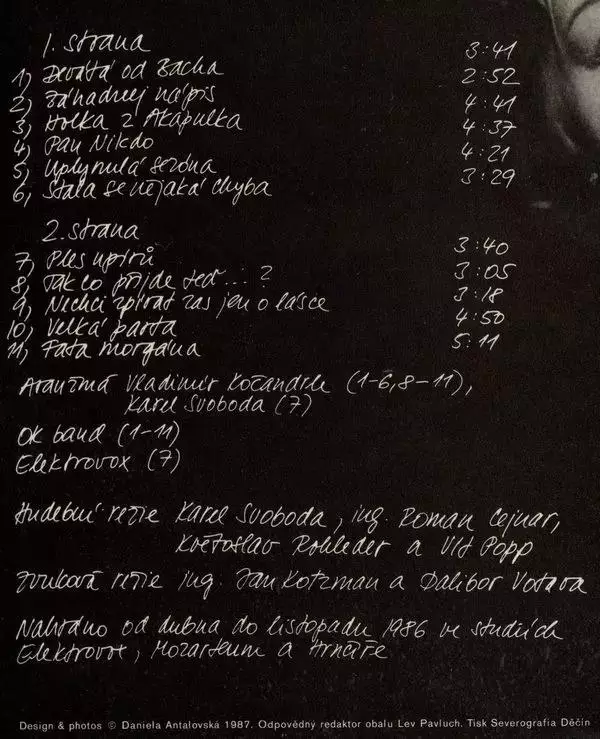 1. strana
1, Devátá od Bacha 3:41
2, Záhadnej nápis 2:52
3, Holka z Akapulka 4:41
4, Pan Nikdo 4:37
5, Uplynulá sezóna 4:21
6, Stala se nějaká chyba 3:29
2. strana
7, Ples upírů 3:40
8, Tak co přijde teď...? 3:05
9, Nechci zpívat zas jen o lásce 3:18
10, Velká parta 4:50
11, Fata morgána 5:11
Aranžmá Vladimír Kočandrle (1-6,8-11),
Karel Svoboda (7)
OK band (1-11)
Elektrovox (7)
Hudební režie Karel Svoboda, ing. Roman Cejnar,
Květoslav Rohleder a Vít Popp
Zvuková režie ing. Jan Kotzman a Dalibor Votava
Nahráno od dubna do listopadu 1986 ve studiích
Elektrovox, Mozarteum a Hrnčíře
Design & photos © Daniela Antalovská 1987. Odpovědný redaktor obalu Lev Pavluch. Tisk Severografia Děčín